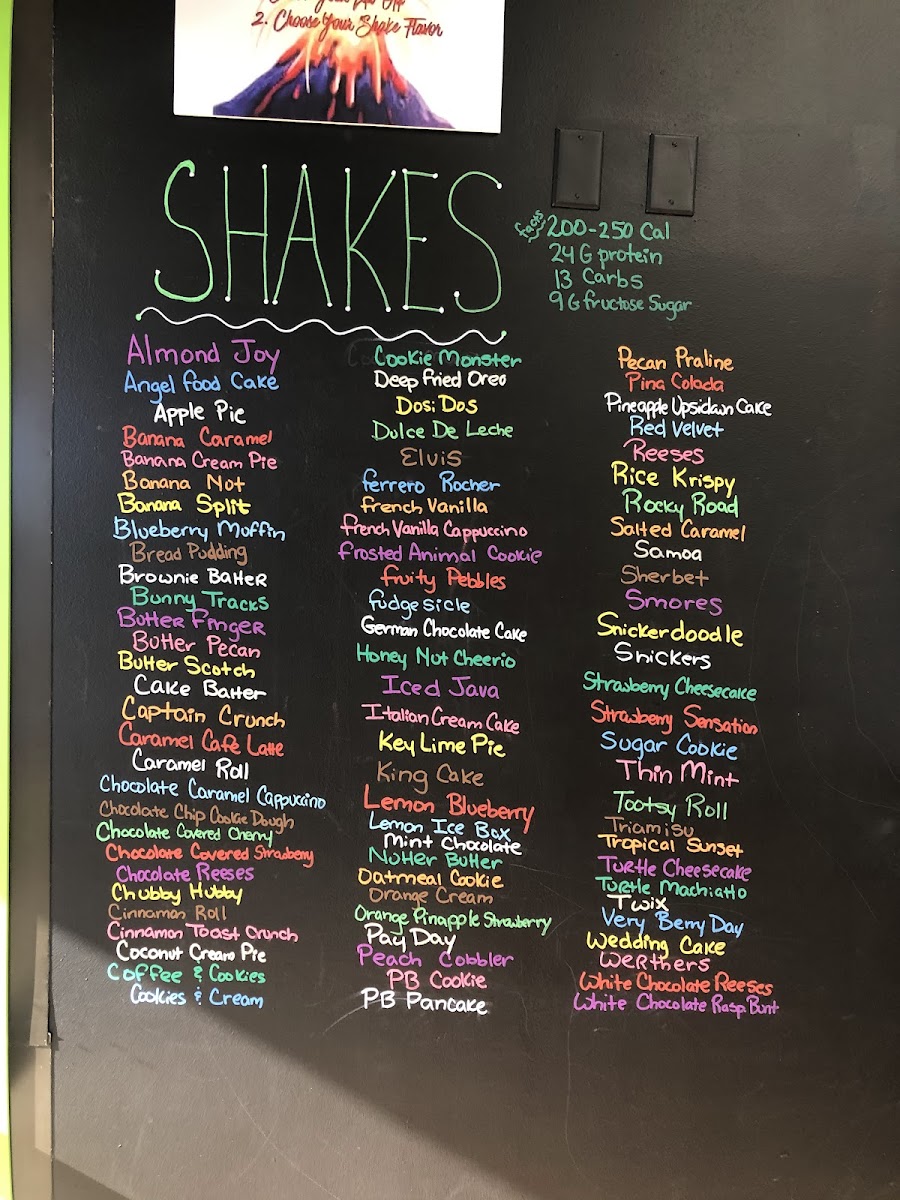 2. Choose Your Shake Flavor
SHAKES
facts
200-250 Cal
24 G protein
13 Carbs
9 G fructose Sugar
Almond Joy
Angel food Cake
Apple Pie
Banana Caramel
Banana Cream Pie
Banana Nut
Banana Split
Blueberry Muffin
Bread Pudding
Brownie Batter
Bunny Tracks
Butter Finger
Butter Pecan
Butter Scotch
Cake Batter
Captain Crunch
Caramel Cafe Latte
Caramel Roll
Chocolate Caramel Cappuccino
Chocolate Chip Cookie Dough
Chocolate Covered Cherry
Chocolate Covered Strawberry
Chocolate Reeses
Chubby Hubby
Cinnamon Roll
Cinnamon Toast Crunch
Coconut Cream Pie
Coffee & Cookies
Cookies & Cream
Cookie Monster
Deep Fried Oreo
Dosi Dos
Dulce De Leche
Elvis
ferrero Rocher
french Vanilla
french Vanilla Cappuccino
frosted Animal Cookie
fruity Pebbles
fudgesicle
German Chocolate Cake
Honey Nut Cheerio
Iced Java
Italian Cream Cake
Key Lime Pie
King Cake
Lemon Blueberry
Lemon Ice Box
Mint Chocolate
Nutter Butter
Oatmeal Cookie
Orange Cream
Orange Pinapple Strawberry
Pay Day
Peach Cobbler
PB Cookie
PB Pancake
Pecan Praline
Pina Colada
Pineapple Upsidawn Cake
Red Velvet
Reeses
Rice Krispy
Rocky Road
Salted Caramel
Samoa
Sherbet
Smores
Snickerdoodle
Snickers
Strawberry Cheesecake
Strawberry Sensation
Sugar Cookie
Thin Mint
Tootsy Roll
Triamisu
Tropical Sunset
Turtle Cheesecake
Turtle Machiatto
Twix
Very Berry Day
Wedding Cake
Werthers
White Chocolate Reeses
White Chocolate Rasp. Bunt